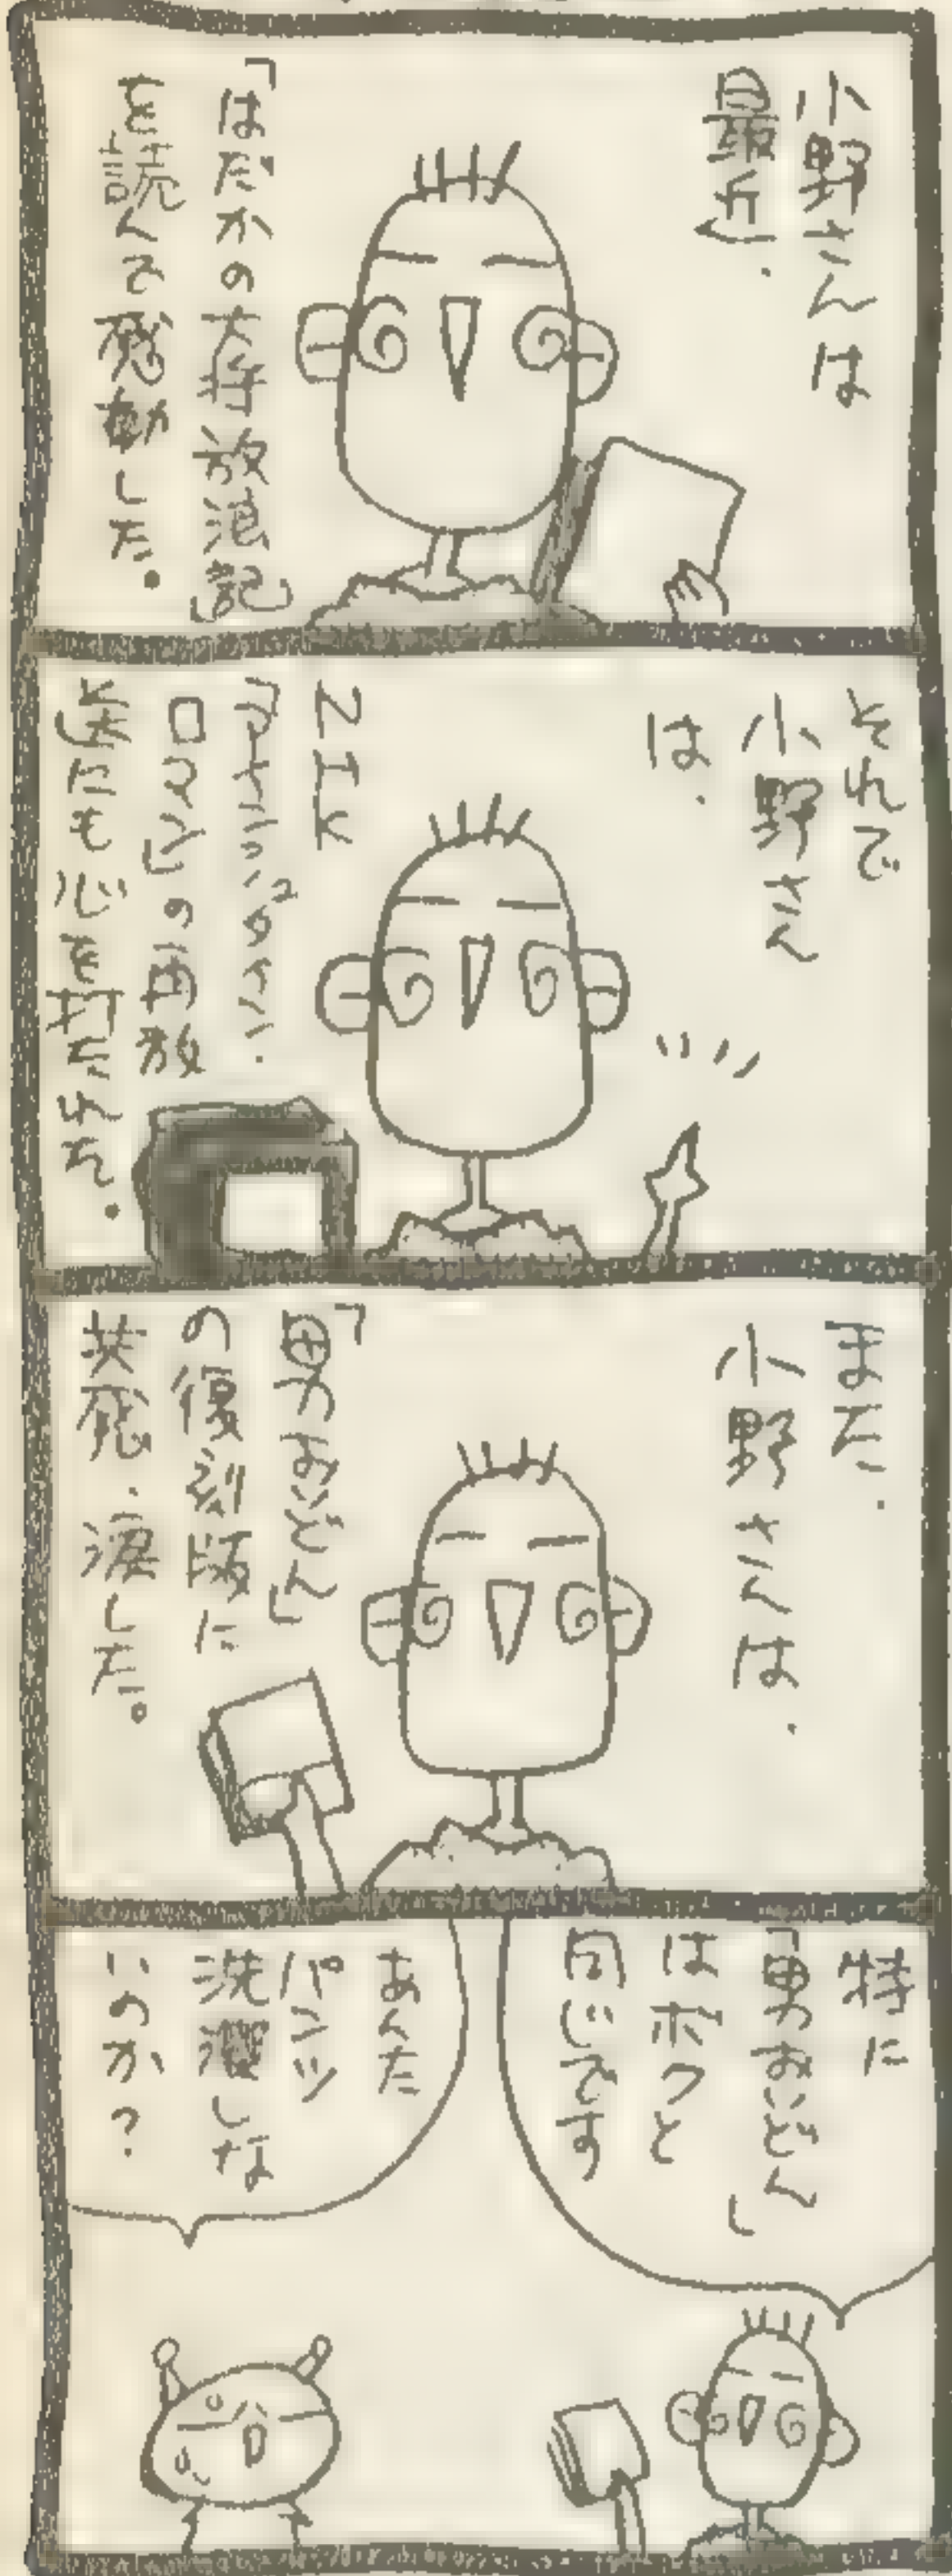 小野さんは
最近、
「はだかの大将放浪記」
を読んで感動した。
それで
小野さん
は、
NHK
ロマン」の再放
送にも心を打たれた。
また、
小野さんは、
「男おいどん」
の復刻版に
共感、涙した。
特に
「男おいどん」
はボクと
同じです
あんた
パンツ
洗濯しな
いのか？